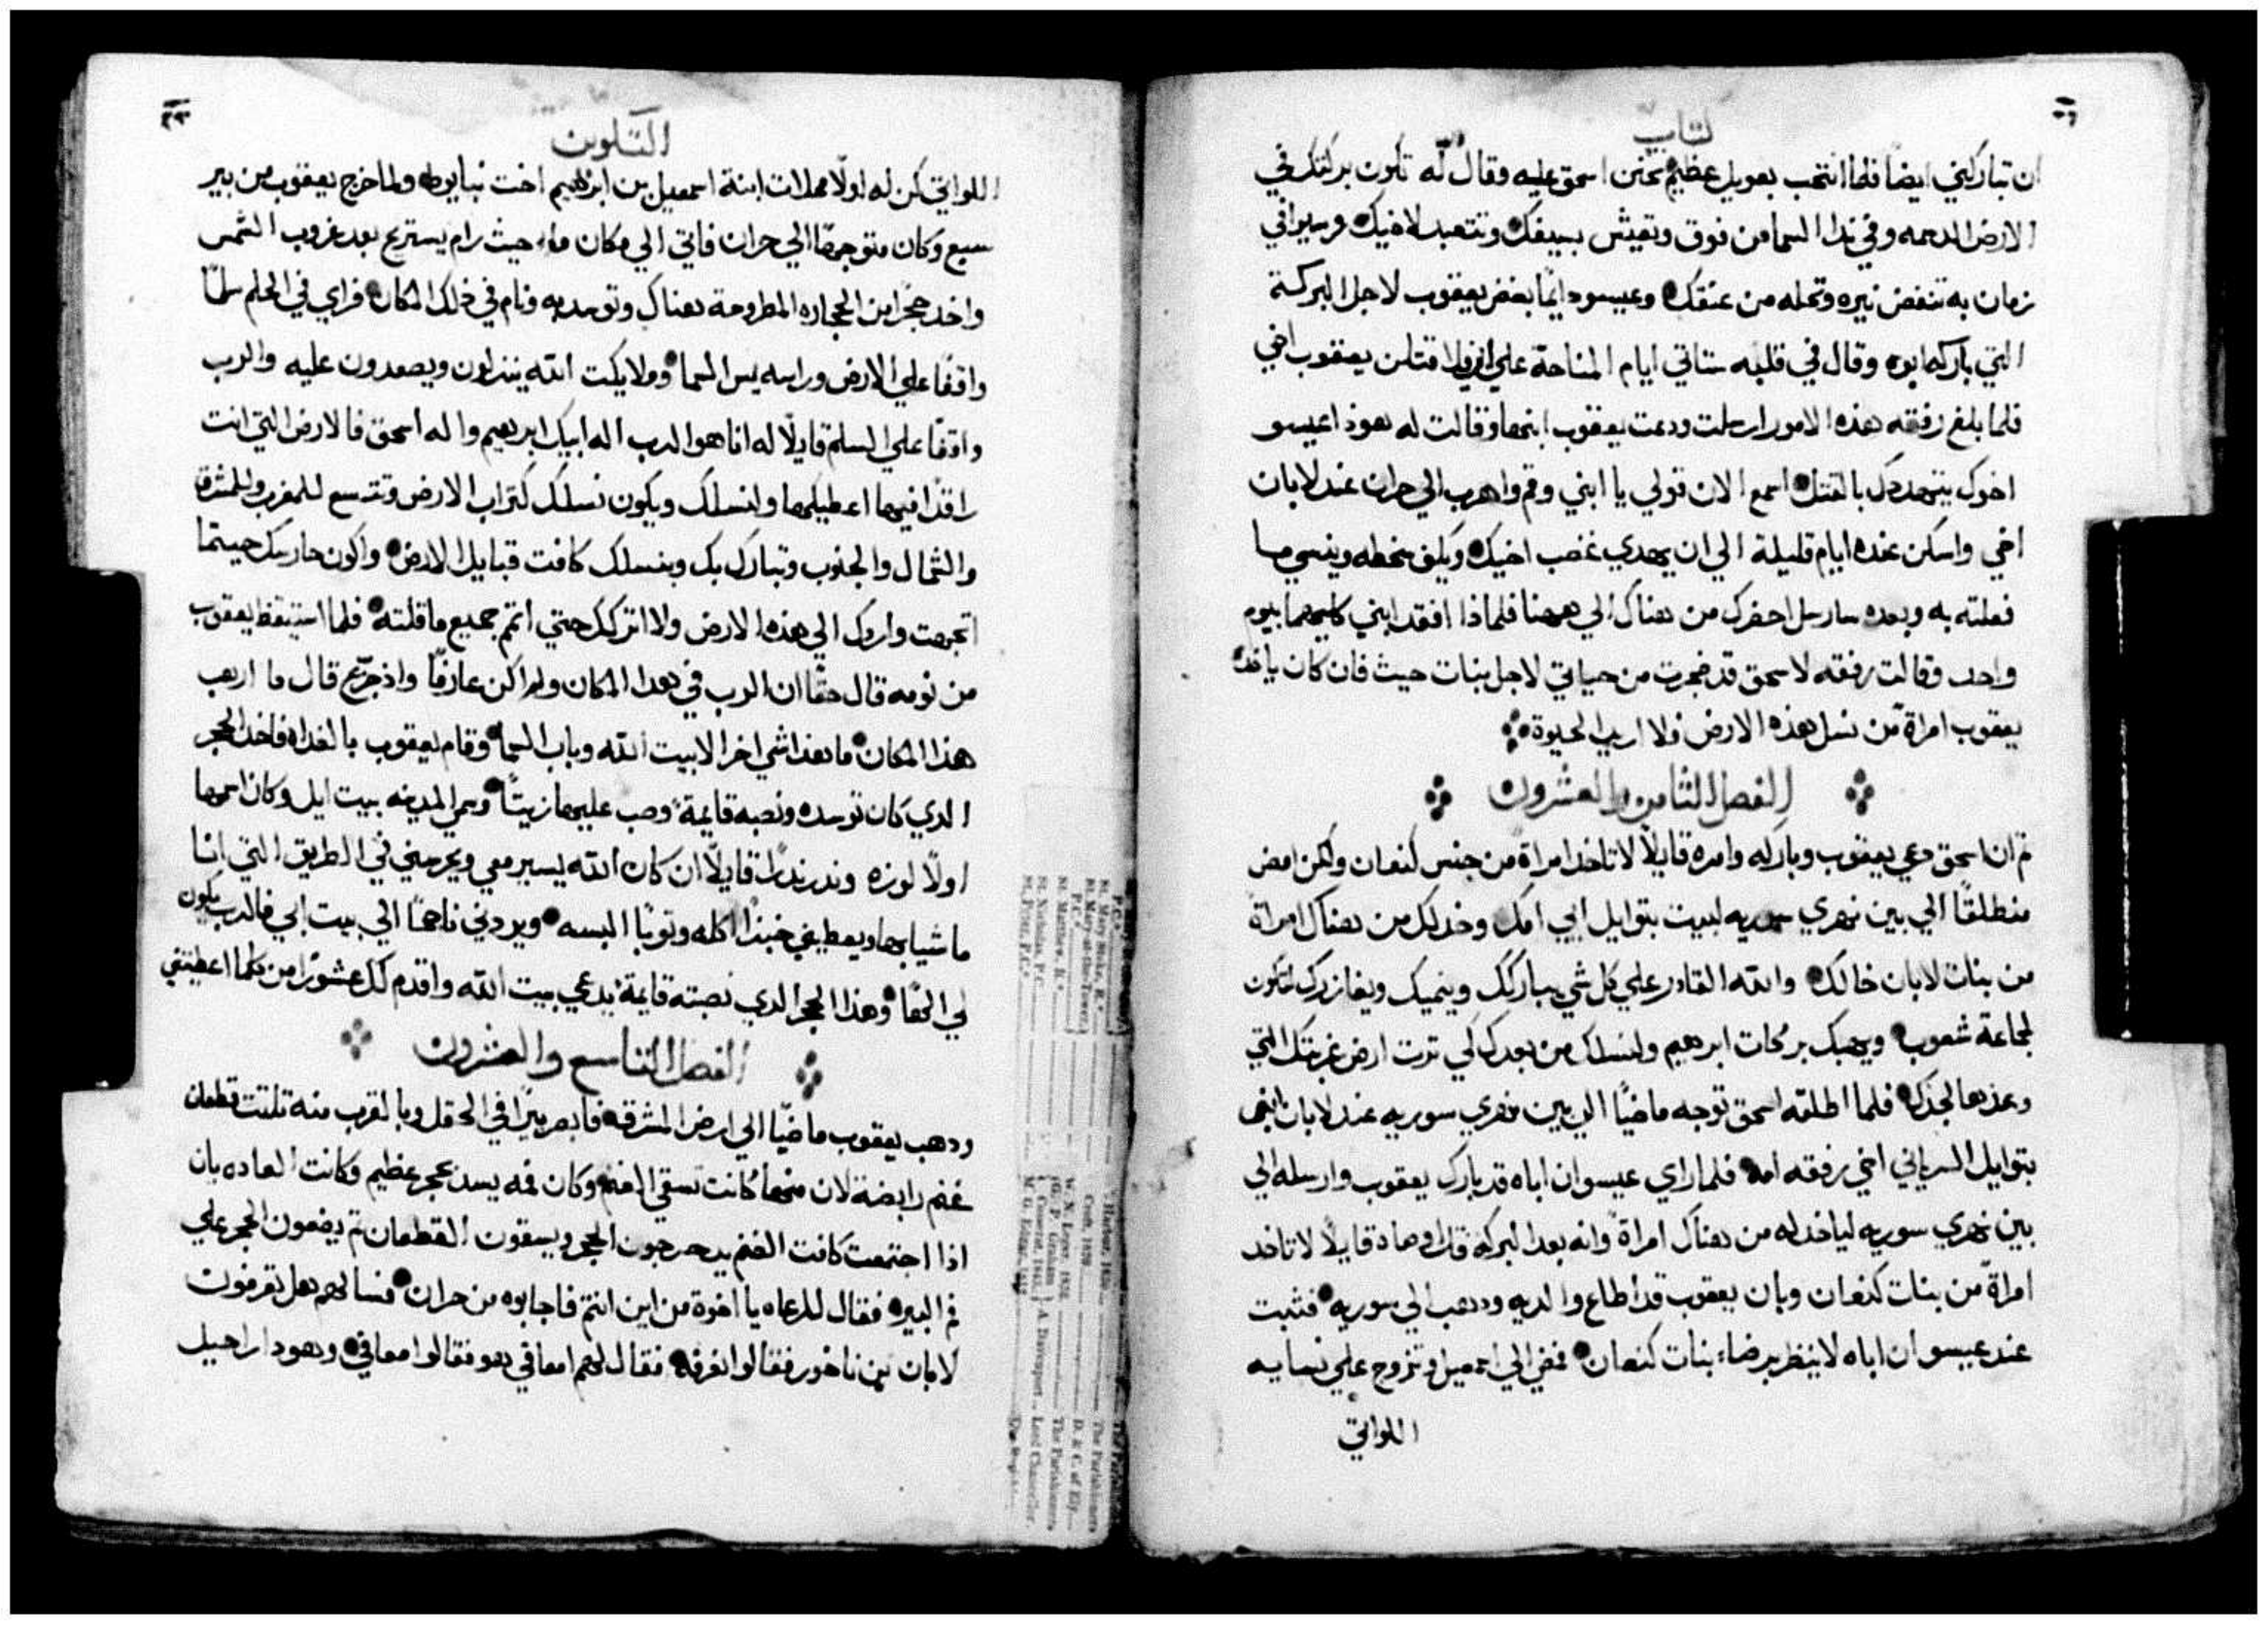 كتاب
ان تباركني ايضا فلما انتحب بعويل عظيم تحنن اسحق عليه وقال له تكون بركتك في
الارض الدسمه وفي ندا السما من فوق وتعيش بسيفك وتتعبد لاخيك وسيوافي
زمان به تنفض نيره وتحله من عنقك وعيسو دايمًا بغض يعقوب لاجل البركة
التي باركه ابوه وقال في قلبه ستاتي ايام المناحة علي ابي ولاقتلن يعقوب اخي
فلما بلغ رفقه هذه الامور ارسلت ودعت يعقوب ابنها وقالت له هوذا عيسو
اخوك يتهددك بالقتل اسمع الان قولي يا ابني وقم واهرب الي حران عند لابان
اخي واسكن عنده ايام قليلة الي ان يهدي غضب اخيك ويكف سخطه وينسي ما
فعلته به وبعده سارسل احضرك من هناك الي ههنا فلماذا افقد ابني كليهما بيوم
واحد وقالت رفقه لاسحق قد ضجرت من حياتي لاجل بنات حيث فان كان ياخذ
يعقوب امراة من نسل هذه الارض فلا اريد الحيوة
الفصل الثامن والعشرون
ثم ان اسحق دعي يعقوب وباركه وامره قايلًا لا تاخذ امراة من جنس كنعان ولكن امض
منطلقًا الي بين نهري سوريه لبيت بتوايل ابي امك وخد لك من هناك امراة
من بنات لابان خالك والله القادر علي كل شي يباركك وينميك ويغازرك لتكون
لجماعة شعوب ويهبك بركات ابرهيم ولنسلك من بعدك لكي ترث ارض غربتك التي
وعدها لجدك فلما اطلقه اسحق توجه ماضيًا الي بين نهري سوريه عند لابان ابن
بتوايل السرياني اخي رفقه امه فلما راي عيسو ان اباه قد بارك يعقوب وارسله الي
بين نهري سوريه لياخد له من هناك امراة وانه بعد البركه قد اوصاه قايلًا لا تاخد
امراة من بنات كنعان وبان يعقوب قد اطاع والديه ودهب الي سوريه فثبت
عند عيسو ان اباه لا ينظر برضاء بنات كنعان فمضي الي اسمعيل وتزوج علي نسايه
اللواتي
التكوين
٢٣
اللواتي كن له اولًا محلات ابنة اسمعيل بن ابرهيم اخت نبايوط ولما خرج يعقوب من بير
سبع وكان متوجهًا الي حران فاتي الي مكان ما حيث رام يستريح بعد غروب الشمس
واخد حجرًا من الحجاره المطروحة هناك وتوسد به ونام في ذلك المكان فراي في الحلم سلمًا
واقفًا علي الارض وراسه يمس السما وملايكت الله ينزلون ويصعدون عليه والرب
واقفًا علي السلم قايلًا له انا هو الرب اله ابيك ابرهيم واله اسحق فالارض التي انت
راقدًا فيها اعطيكها ولنسلك ويكون نسلك كتراب الارض وتتسع للمغرب وللمشرق
والشمال والجنوب وتبارك بك وبنسلك كافت قبايل الارض واكون حارسك حيتما
اتجهت واردك الي هذه الارض ولا اتركك حتي اتم جميع ما قلته فلما استيقظ يعقوب
من نومه قال حقًا ان الرب في هدا المكان ولم اكن عارفًا واذ جزع قال ما ارهب
هذا المكان ما هذا شي اخر الا بيت الله وباب السما وقام يعقوب بالغداه فاخد الحجر
الدي كان توسده ونصبه قايمة وصب عليها زيتًا وسمي المدينه بيت ايل وكان اسمها
اولًا لوزه وندر ندرًا قايلًا ان كان الله يسير معي ويحرسني في الطريق التي انا
ماشيا بها ويعطيني خبزًا اكله وثوبًا البسه ويردني ناجحًا الي بيت ابي فالرب يكون
لي الهًا وهذا الحجر الدي نصبته قايمة يدعي بيت الله واقدم لك عشورًا من كلما اعطيتني
الفصل التاسع والعشرون
ودهب يعقوب ماضيًا الي ارض المشرقه فابصر بيرًا في الحقل وبالقرب منه تلتت قطعان
غنم رابضة لان منها كانت تسقي الغنم وكان فمه يسد بحجر عظيم وكانت العاده بان
اذا اجتمعت كانت الغنم يدحرجون الحجر ويسقون القطعان ثم يضعون الحجر علي
فم البير فقال للرعاه يا اخوة من اين انتم فاجابوه من حران فسالهم هل تعرفون
لابان بن ناخور فقالوا نعرفه فقال لهم امعافي هو فقالوا معافي وهودا راحيل